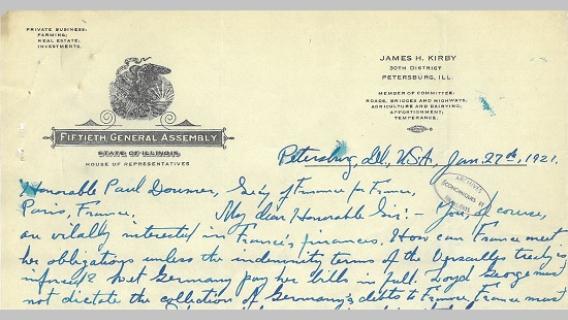 PRIVATE BUSINESS:
FARMING;
REAL ESTATE;
INVESTMENTS.
JAMES H. KIRBY
30TH DISTRICT
PETERSBURG, ILL.
MEMBER OF COMMITTEE:
ROADS, BRIDGES AND HIGHWAYS,
AGRICULTURE AND DAIRYING,
APPORTIONMENT,
TEMPERANCE.
FIFTIETH GENERAL ASSEMBLY
STATE OF ILLINOIS
HOUSE OF REPRESENTATIVES
Petersburg, Ill, USA, Jan. 27th, 1921.
ARCHIVES
ECONOMIQUES ET
Honorable Paul Doumer, Secy of Finance for France,
Paris, France. My dear Honorable Sir:- You, of course,
are vitally interested in France's finances. How can France meet
her obligations unless the indemnity terms of the Versailles treaty is
inforced? Let Germany pay her bills in full. Lloyd George must
not dictate the collection of Germany's debts to France. France must